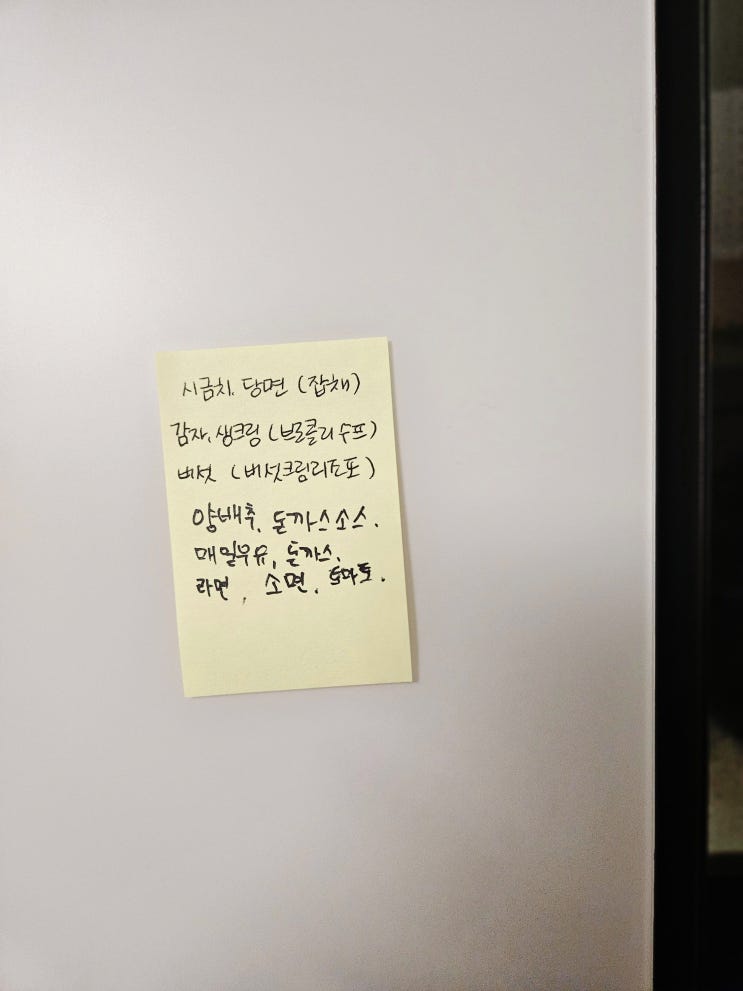 시금치. 당면 (잡채)
감자. 생크림 (브로콜리수프)
버섯 (버섯크림리조또)
양배추. 돈까스소스.
매일우유, 돈까스.
라면, 소면. 토마토.